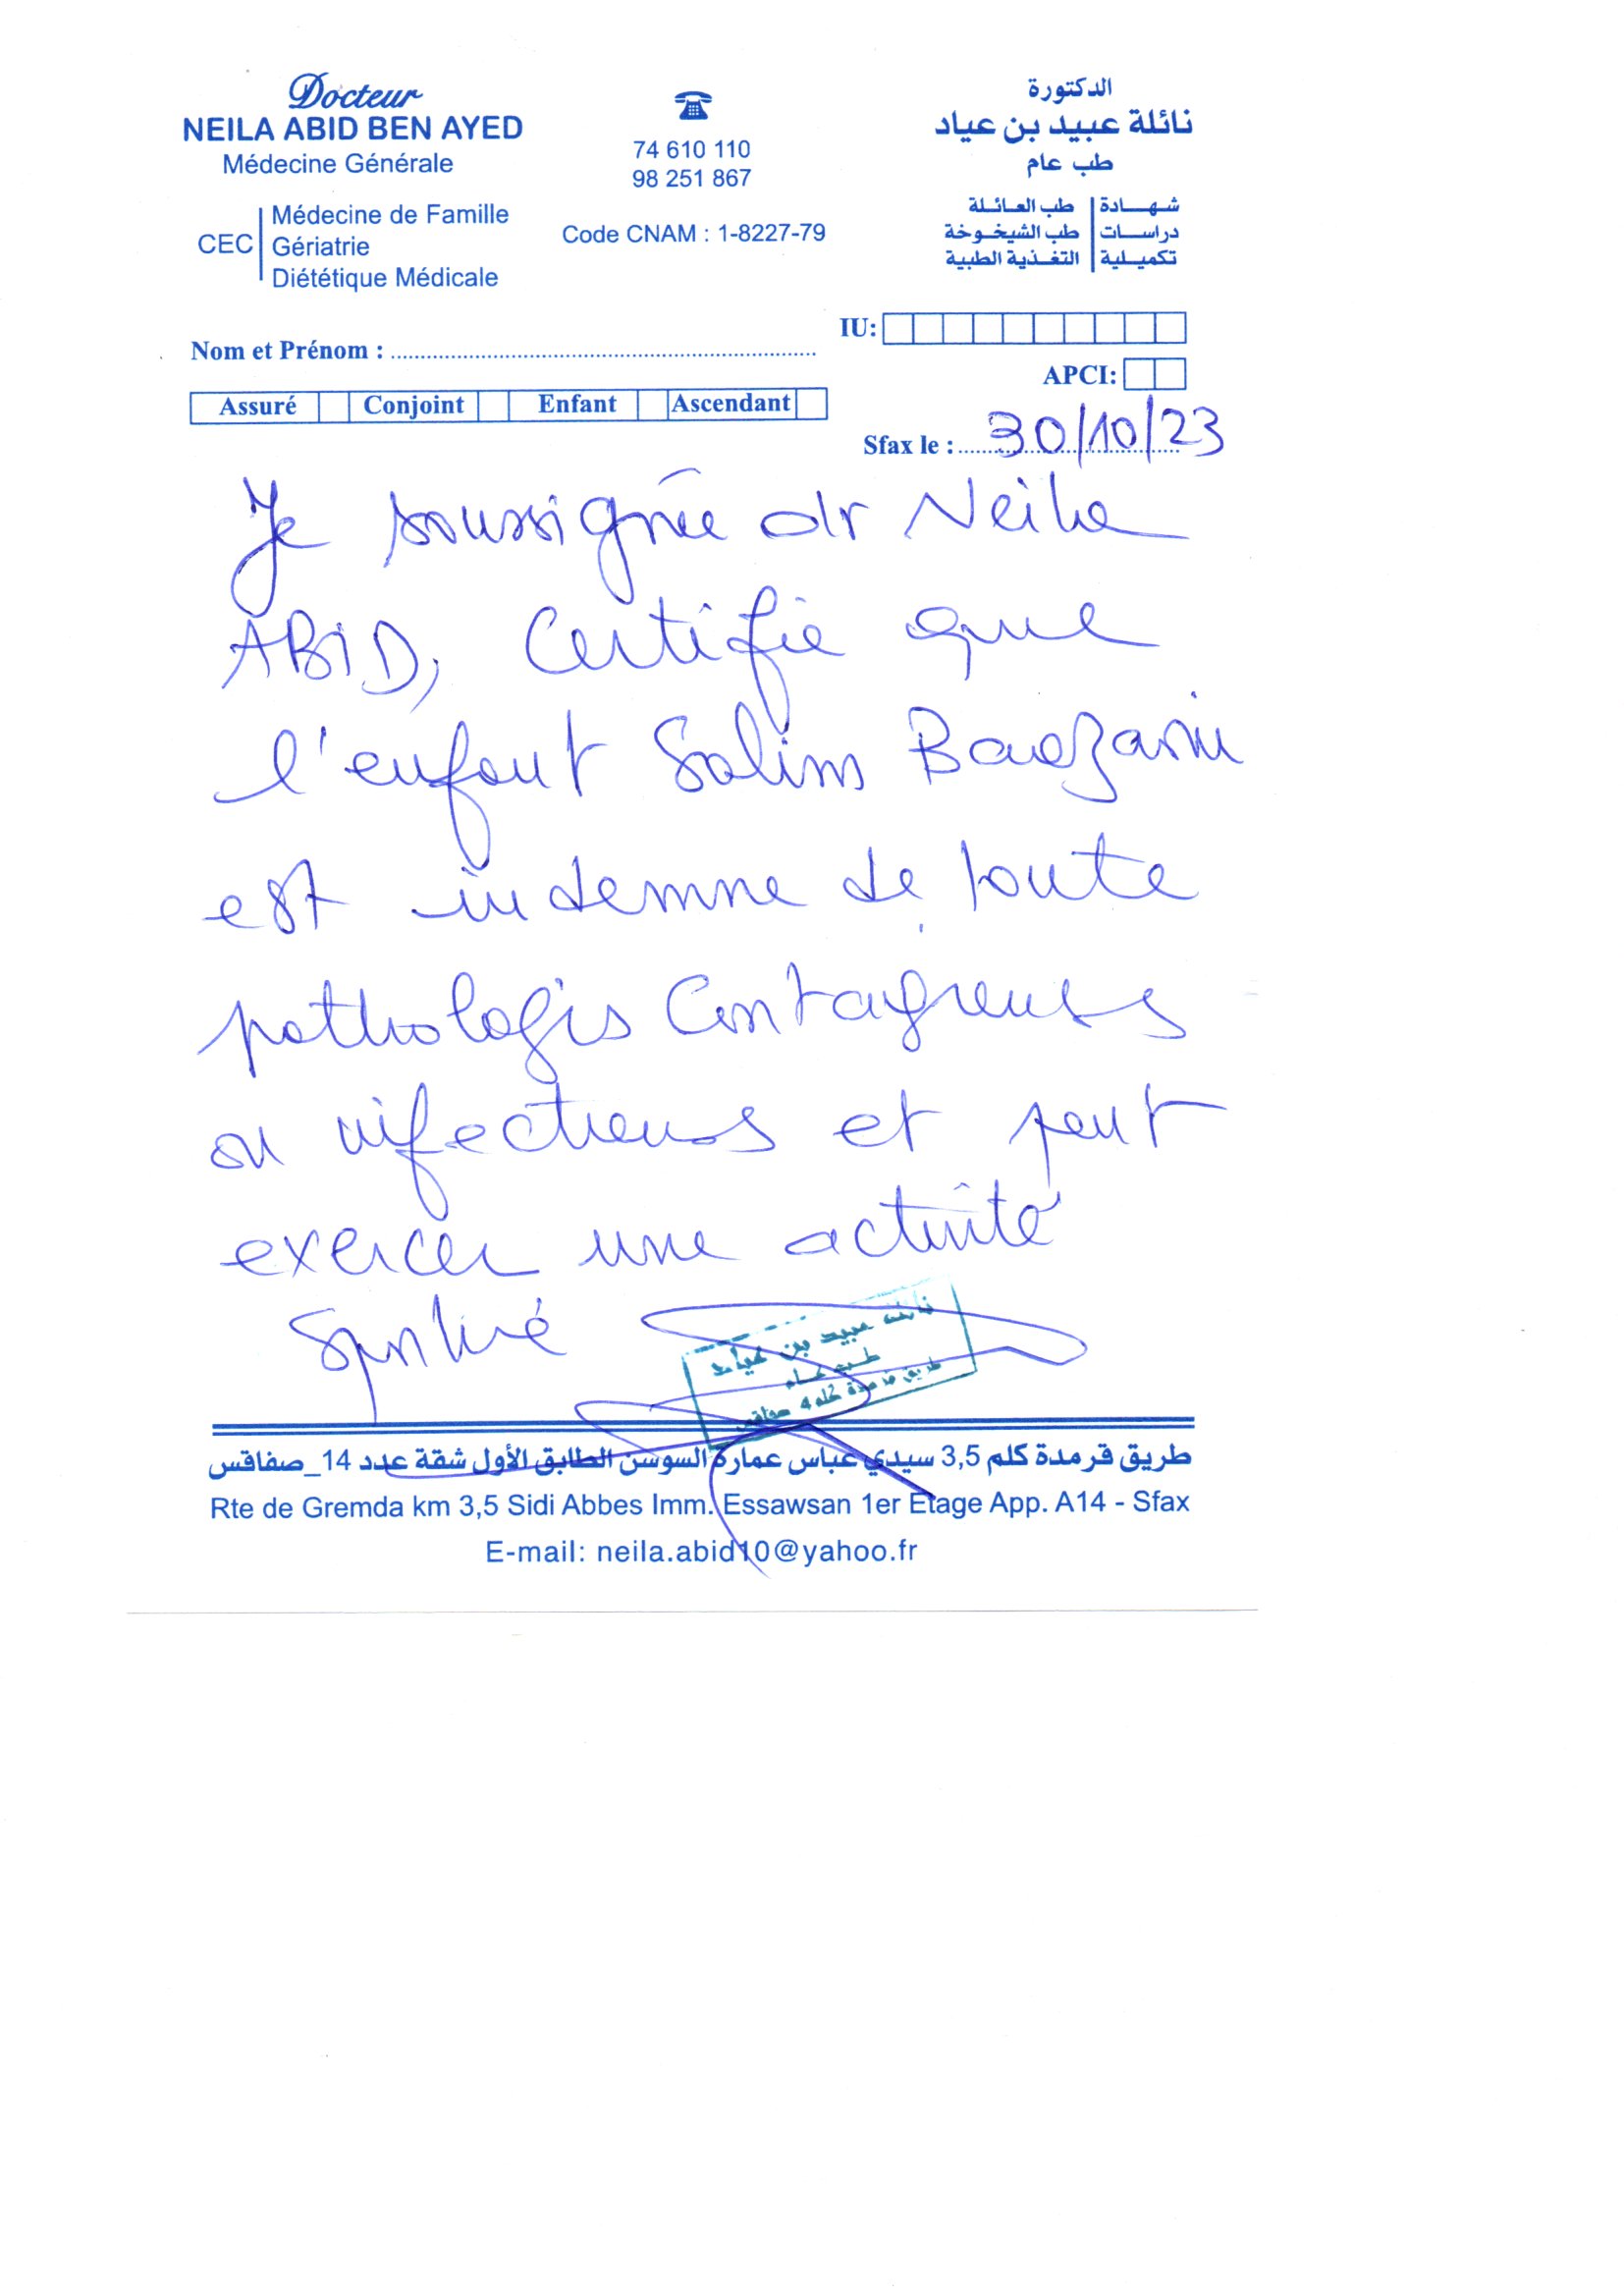 Docteur
NEILA ABID BEN AYED
Médecine Générale
CEC
Médecine de Famille
Gériatrie
Diététique Médicale
74 610 110
98 251 867
Code CNAM : 1-8227-79
الدكتورة
نائلة عبيد بن عياد
طب عام
شهادة طب العائلة
دراسات طب الشيخوخة
تكميلية التغذية الطبية
IU:
Nom et Prénom :
APCI:
Assuré Conjoint Enfant Ascendant
Sfax le : 30/10/23
Je soussignée dr Neila
ABID, Certifie que
l'enfant Salim
est indemne de toute
pathologis Contagieuses
ou infectieuses et peut
exercer une activité
Sportive
نائلة عبيد بن عياد
طب عام
طريق قرمدة كلم 4 صفاقس
طريق قرمدة كلم 3,5 سيدي عباس عمارة السوسن الطابق الأول شقة عدد 14_صفاقس
Rte de Gremda km 3,5 Sidi Abbes Imm. Essawsan 1er Etage App. A14 - Sfax
E-mail: neila.abid10@yahoo.fr